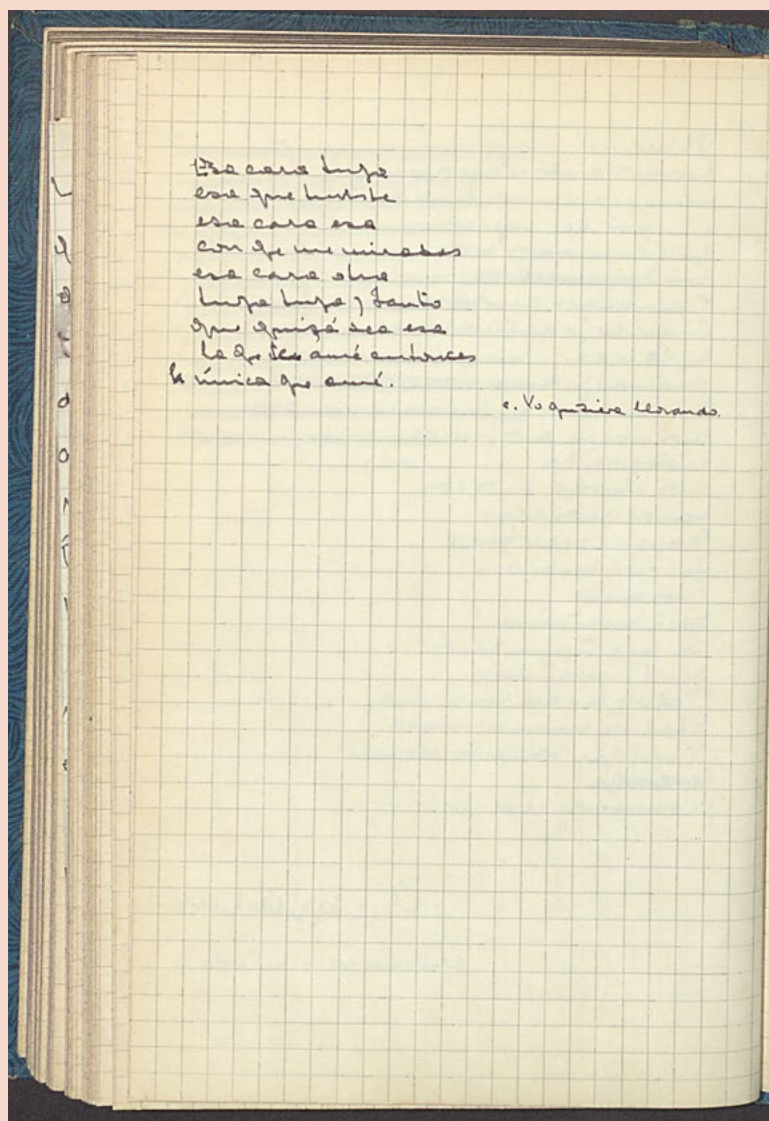 Esa cara tuya
esa que tuviste
esa cara esa
con qe me mirabas
esa cara otra
tuya tuya y tanto
que quizá sea esa
la qe amé entonces
la única qe amé.
c. Yo quisiera llorando.